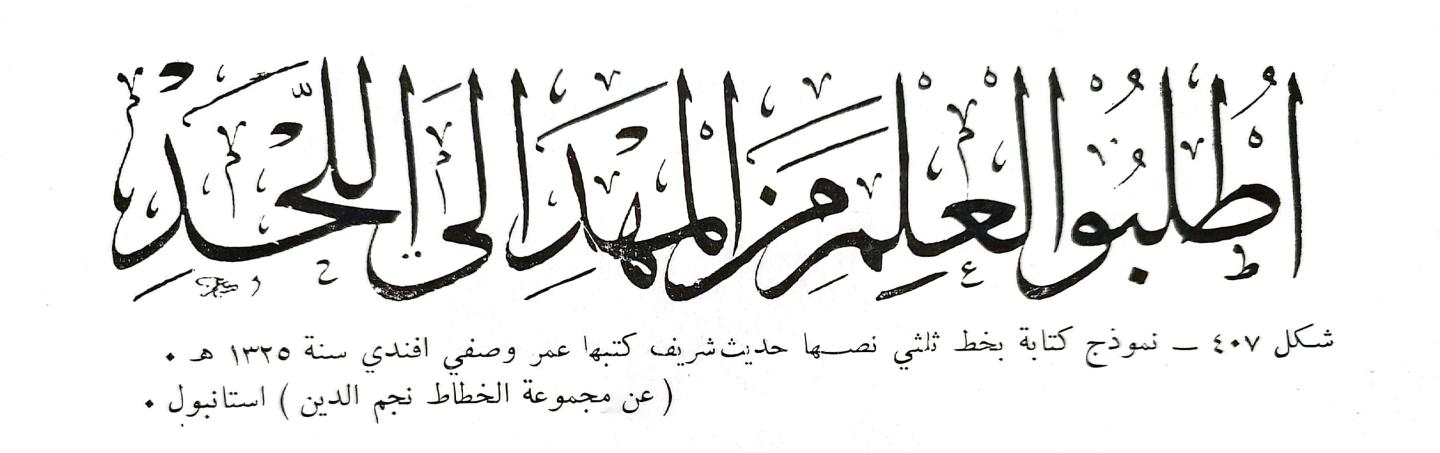 اُطْلُبُوا الْعِلْمَ مِنَ الْمَهْدِ اِلَى اللَّحْدِ
شكل ٤٠٧ — نموذج كتابة بخط ثلثي نصها حديث شريف كتبها عمر وصفي افندي سنة ١٣٢٥ هـ .
( عن مجموعة الخطاط نجم الدين ) استانبول .